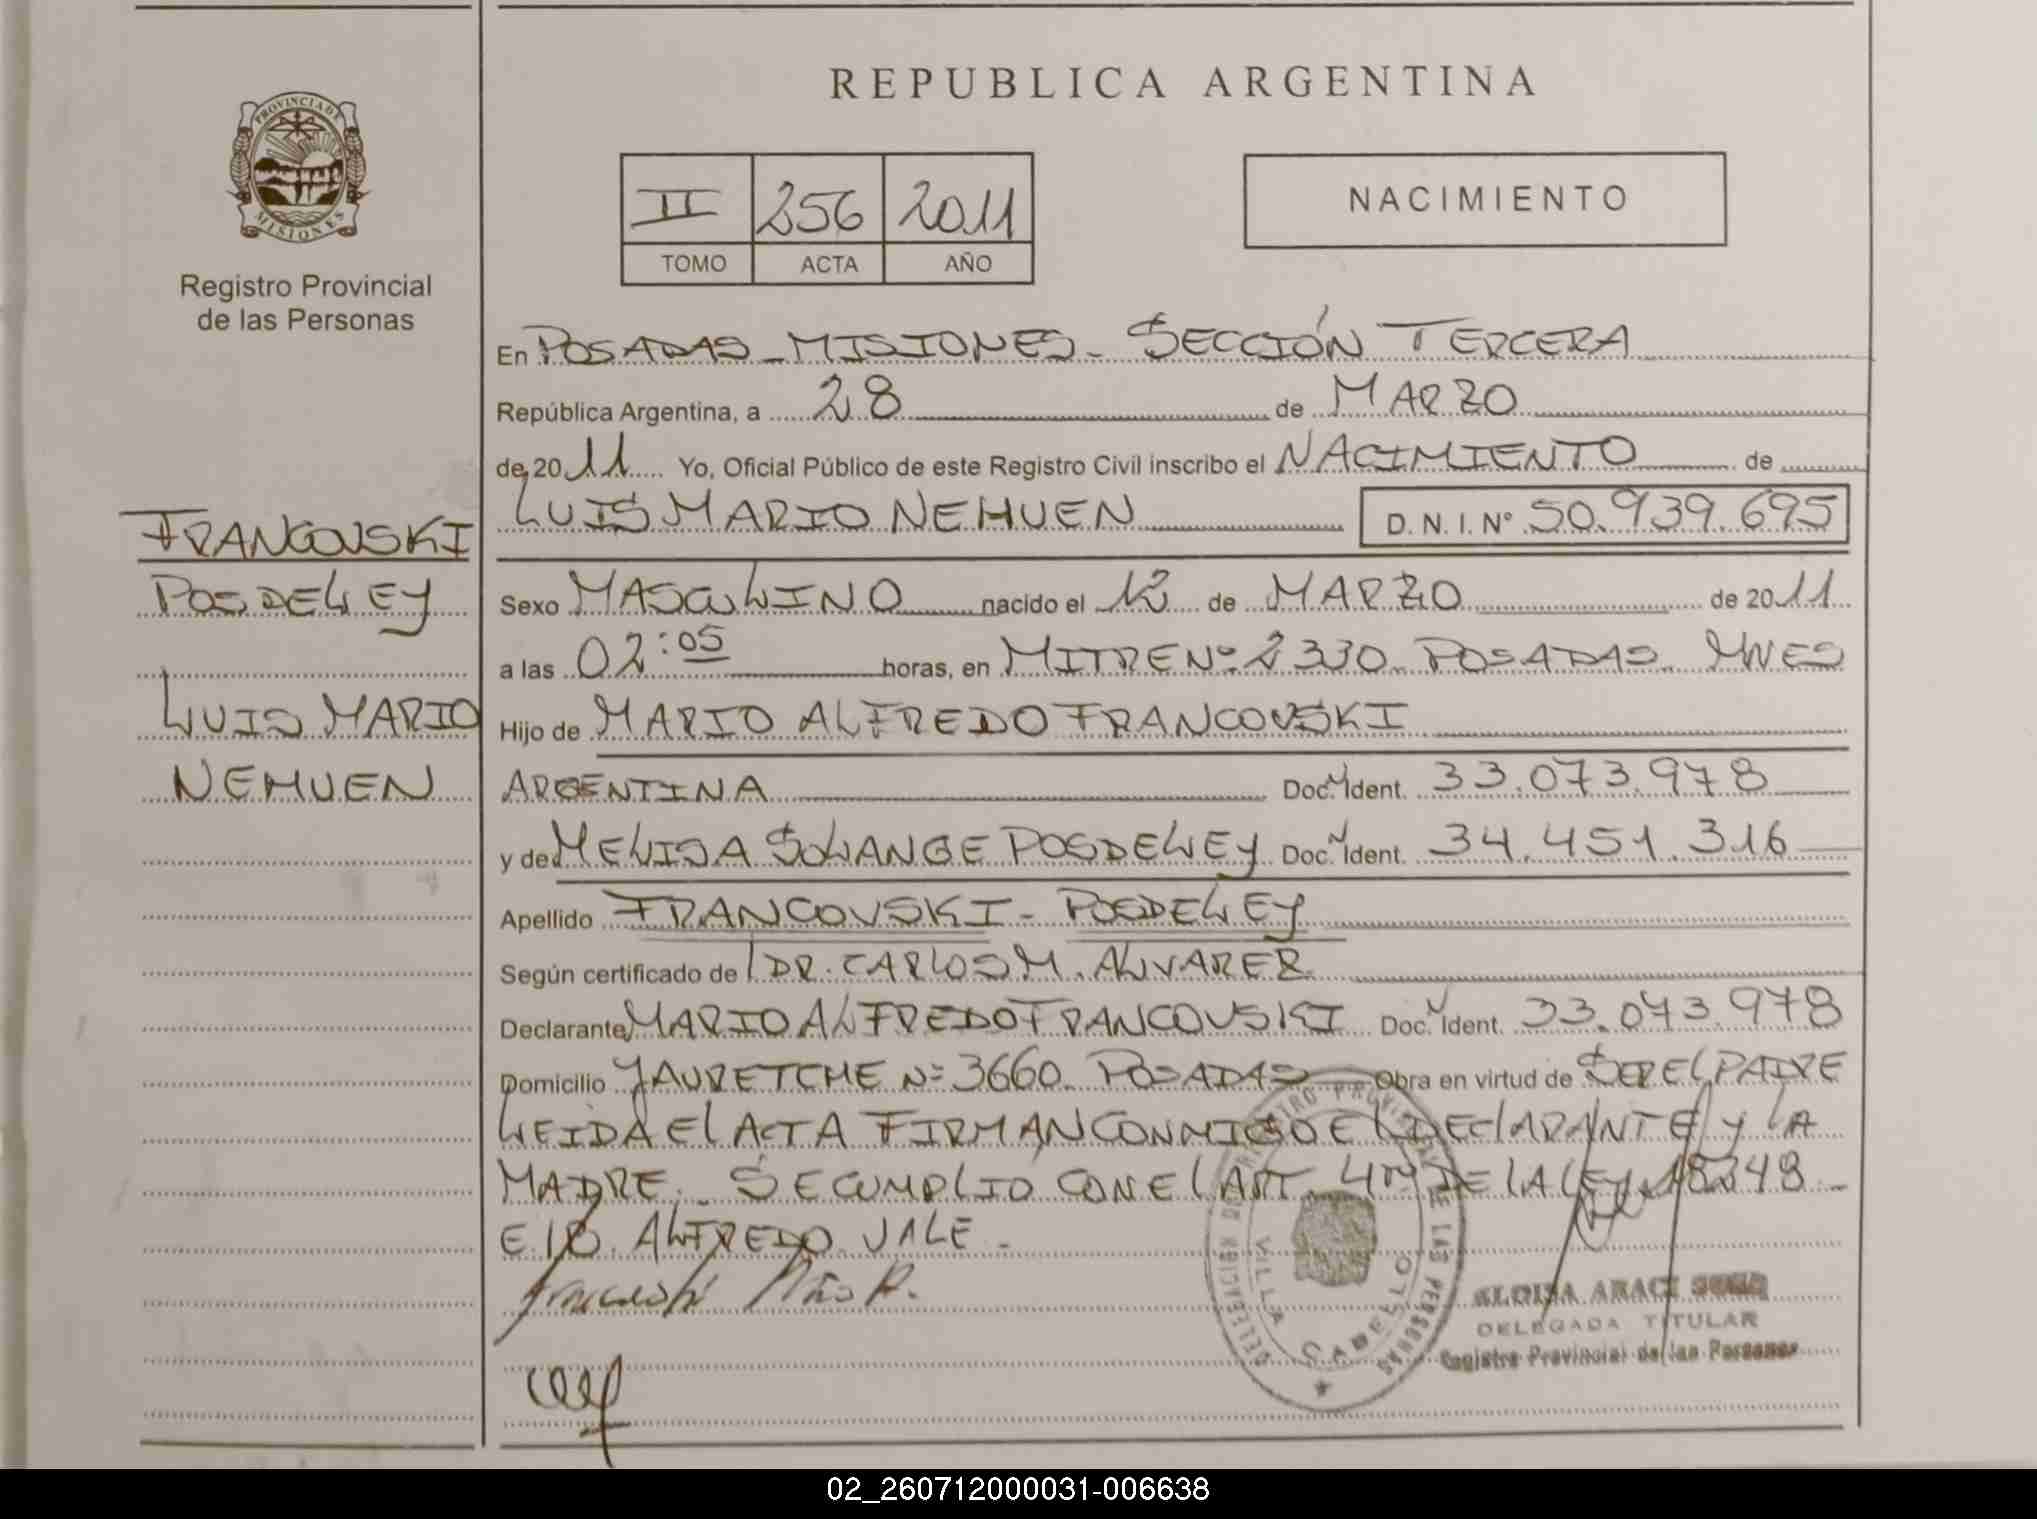 REPUBLICA ARGENTINA
PROVINCIA DE
MISIONES
Registro Provincial
de las Personas
II 256 2011
TOMO ACTA AÑO
NACIMIENTO
En POSADAS - MISIONES - SECCIÓN TERCERA
República Argentina, a 28 de MARZO
de 2011 Yo, Oficial Público de este Registro Civil inscribo el NACIMIENTO de
LUIS MARIO NEHUEN D. N. I. Nº 50.939.695
FRANCOVSKI
POSDELEY
LUIS MARIO
NEHUEN
Sexo MASCULINO nacido el 12 de MARZO de 2011
a las 02:05 horas, en MITRE Nº 2330 POSADAS MNES
Hijo de MARIO ALFREDO FRANCOVSKI
ARGENTINA Doc. Ident. 33.073.978
y de MELISA SOLANGE POSDELEY Doc. Ident. 34.451.316
Apellido FRANCOVSKI - POSDELEY
Según certificado de DR. CARLOS M. ALVAREZ
Declarante MARIO ALFREDO FRANCOVSKI Doc. Ident. 33.073.978
Domicilio JAURETCHE Nº 3660 POSADAS Obra en virtud de SER EL PADRE
LEIDA EL ACTA FIRMAN CONMIGO EL DECLARANTE Y LA
MADRE. SE CUMPLIO CON EL ART. 4TO DE LA LEY 18248
E/R ALFREDO VALE -
DELEGACION DEL REGISTRO PROVINCIAL DE LAS PERSONAS
VILLA CABELLO
ARACI
DELEGADA TITULAR
Registro Provincial de las Personas
02_260712000031-006638